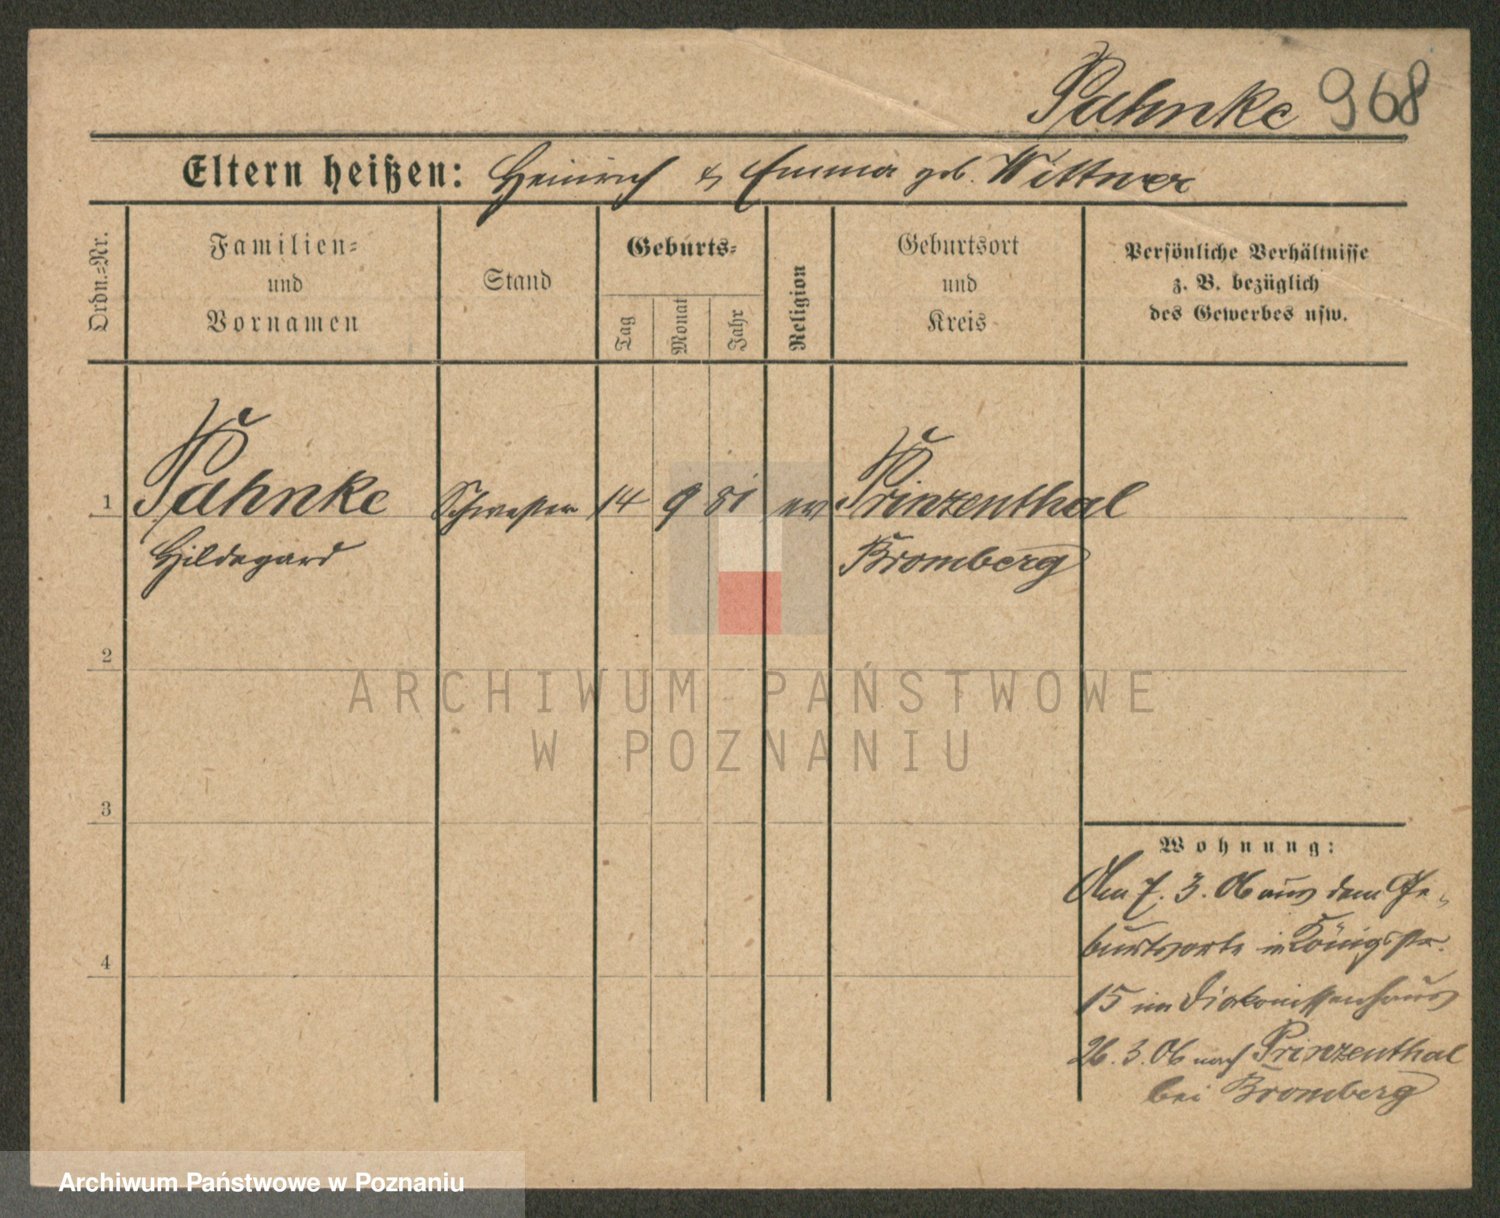 Pahnke 968
Eltern heißen: Heinrich & Emma geb. Wittner
Ordn.=Nr.
Familien=
und
Vornamen
Stand
Geburts=
Tag
Monat
Jahr
Religion
Geburtsort
und
Kreis
Persönliche Verhältnisse
z. B. bezüglich
des Gewerbes usw.
1 Pahnke Schwester 14 9 81 ev Prinzenthal
Hildegard Bromberg
2
3
4
Wohnung:
Am 7. 3. 06 aus dem Ge-
burtsorte in Königstr.
15 im Diakonissenhaus
26. 3. 06 nach Prinzenthal
bei Bromberg
ARCHIWUM PAŃSTWOWE
W POZNANIU
Archiwum Państwowe w Poznaniu